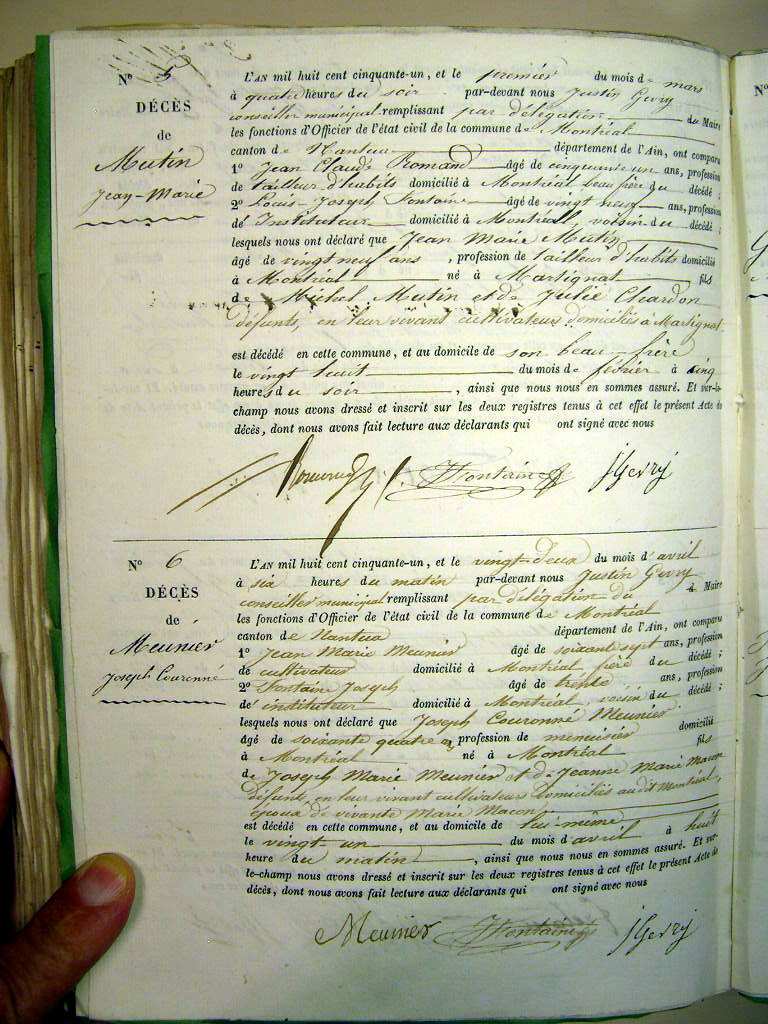 N° 5
DÉCÈS
de
Mutin
Jean-Marie
L'AN mil huit cent cinquante-un, et le premier du mois de mars
à quatre heures du soir par-devant nous Justin Gevry
conseiller municipal remplissant par délégation du Maire
les fonctions d'Officier de l'état civil de la commune de Montréal
canton de Nantua département de l'Ain, ont comparu
1° Jean Claude Romand âgé de cinquante un ans, profession
de tailleur d'habits domicilié à Montréal beau frère du décédé ;
2° Louis-Joseph Fontaine âgé de vingt neuf ans, profession
de Instituteur domicilié à Montréal, voisin du décédé ;
lesquels nous ont déclaré que Jean Marie Mutin
âgé de vingt neuf ans, profession de tailleur d'habits domicilié
à Montréal né à Martignat fils
de Michel Mutin et de Julie Chardon
défunts, en leur vivant cultivateurs domiciliés à Martignat
est décédé en cette commune, et au domicile de son beau-frère
le vingt huit du mois de février à cinq
heures du soir, ainsi que nous nous en sommes assuré. Et sur-le-
champ nous avons dressé et inscrit sur les deux registres tenus à cet effet le présent Acte de
décès, dont nous avons fait lecture aux déclarants qui ont signé avec nous
Fontaine JGevry
N° 6
DÉCÈS
de
Meunier
Joseph Couronné
L'AN mil huit cent cinquante-un, et le vingt-deux du mois d'avril
à six heures du matin par-devant nous Justin Gevry
conseiller municipal remplissant par délégation du Maire
les fonctions d'Officier de l'état civil de la commune de Montréal
canton de Nantua département de l'Ain, ont comparu
1° Jean Marie Meunier âgé de soixante sept ans, profession
de cultivateur domicilié à Montréal frère du décédé ;
2° Fontaine Joseph âgé de trente ans, profession
de instituteur domicilié à Montréal, voisin du décédé ;
lesquels nous ont déclaré que Joseph Couronné Meunier
âgé de soixante quatre profession de menuisier domicilié
à Montréal né à Montréal fils
de Joseph Marie Meunier et de Jeanne Marie Macon
défunts, en leur vivant cultivateurs domiciliés audit Montréal,
époux de vivante Marie Macon
est décédé en cette commune, et au domicile de lui-même
le vingt un du mois d'avril à huit
heure du matin, ainsi que nous nous en sommes assuré. Et sur-
le-champ nous avons dressé et inscrit sur les deux registres tenus à cet effet le présent Acte de
décès, dont nous avons fait lecture aux déclarants qui ont signé avec nous
Meunier Fontaine JGevry